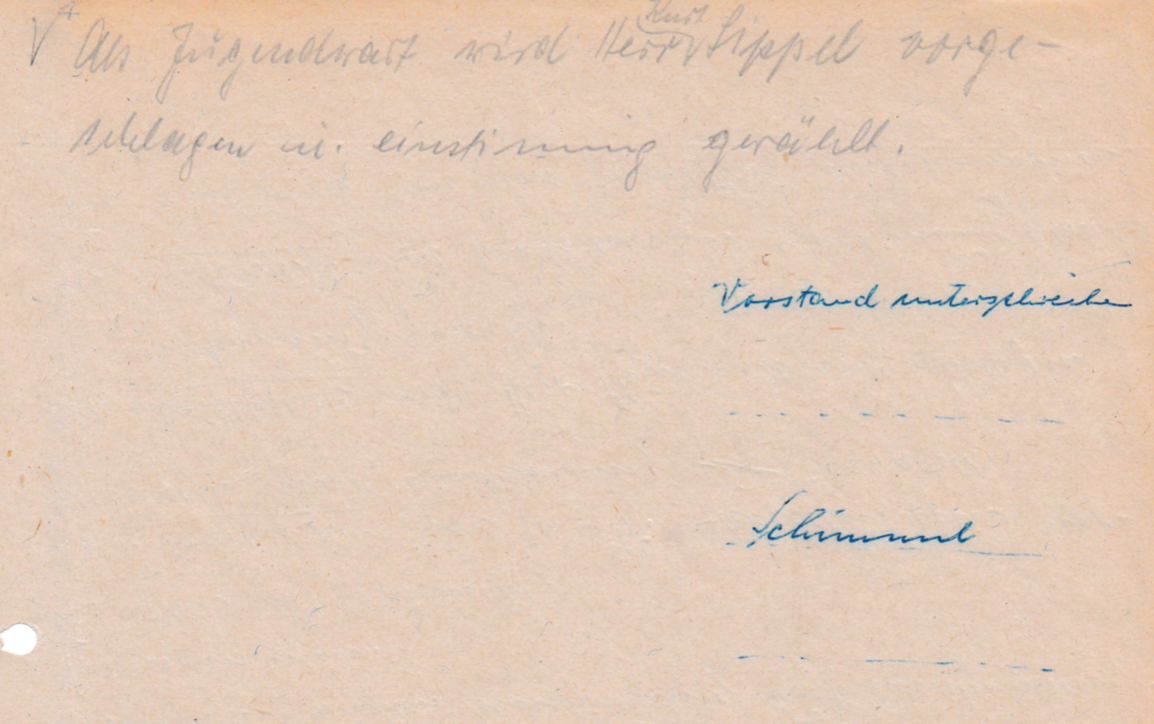 Als Jugendwart wird Herr Kurt Sippel vorge-
schlagen u. einstimmig gewählt.
Vorstand unterschreiben
Schimmel